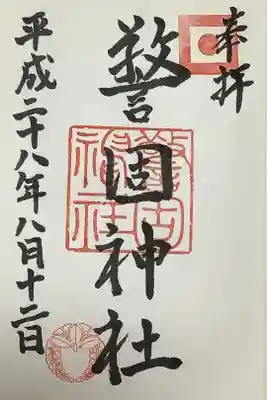 奉拝
警固神社
平成二十八年八月十二日